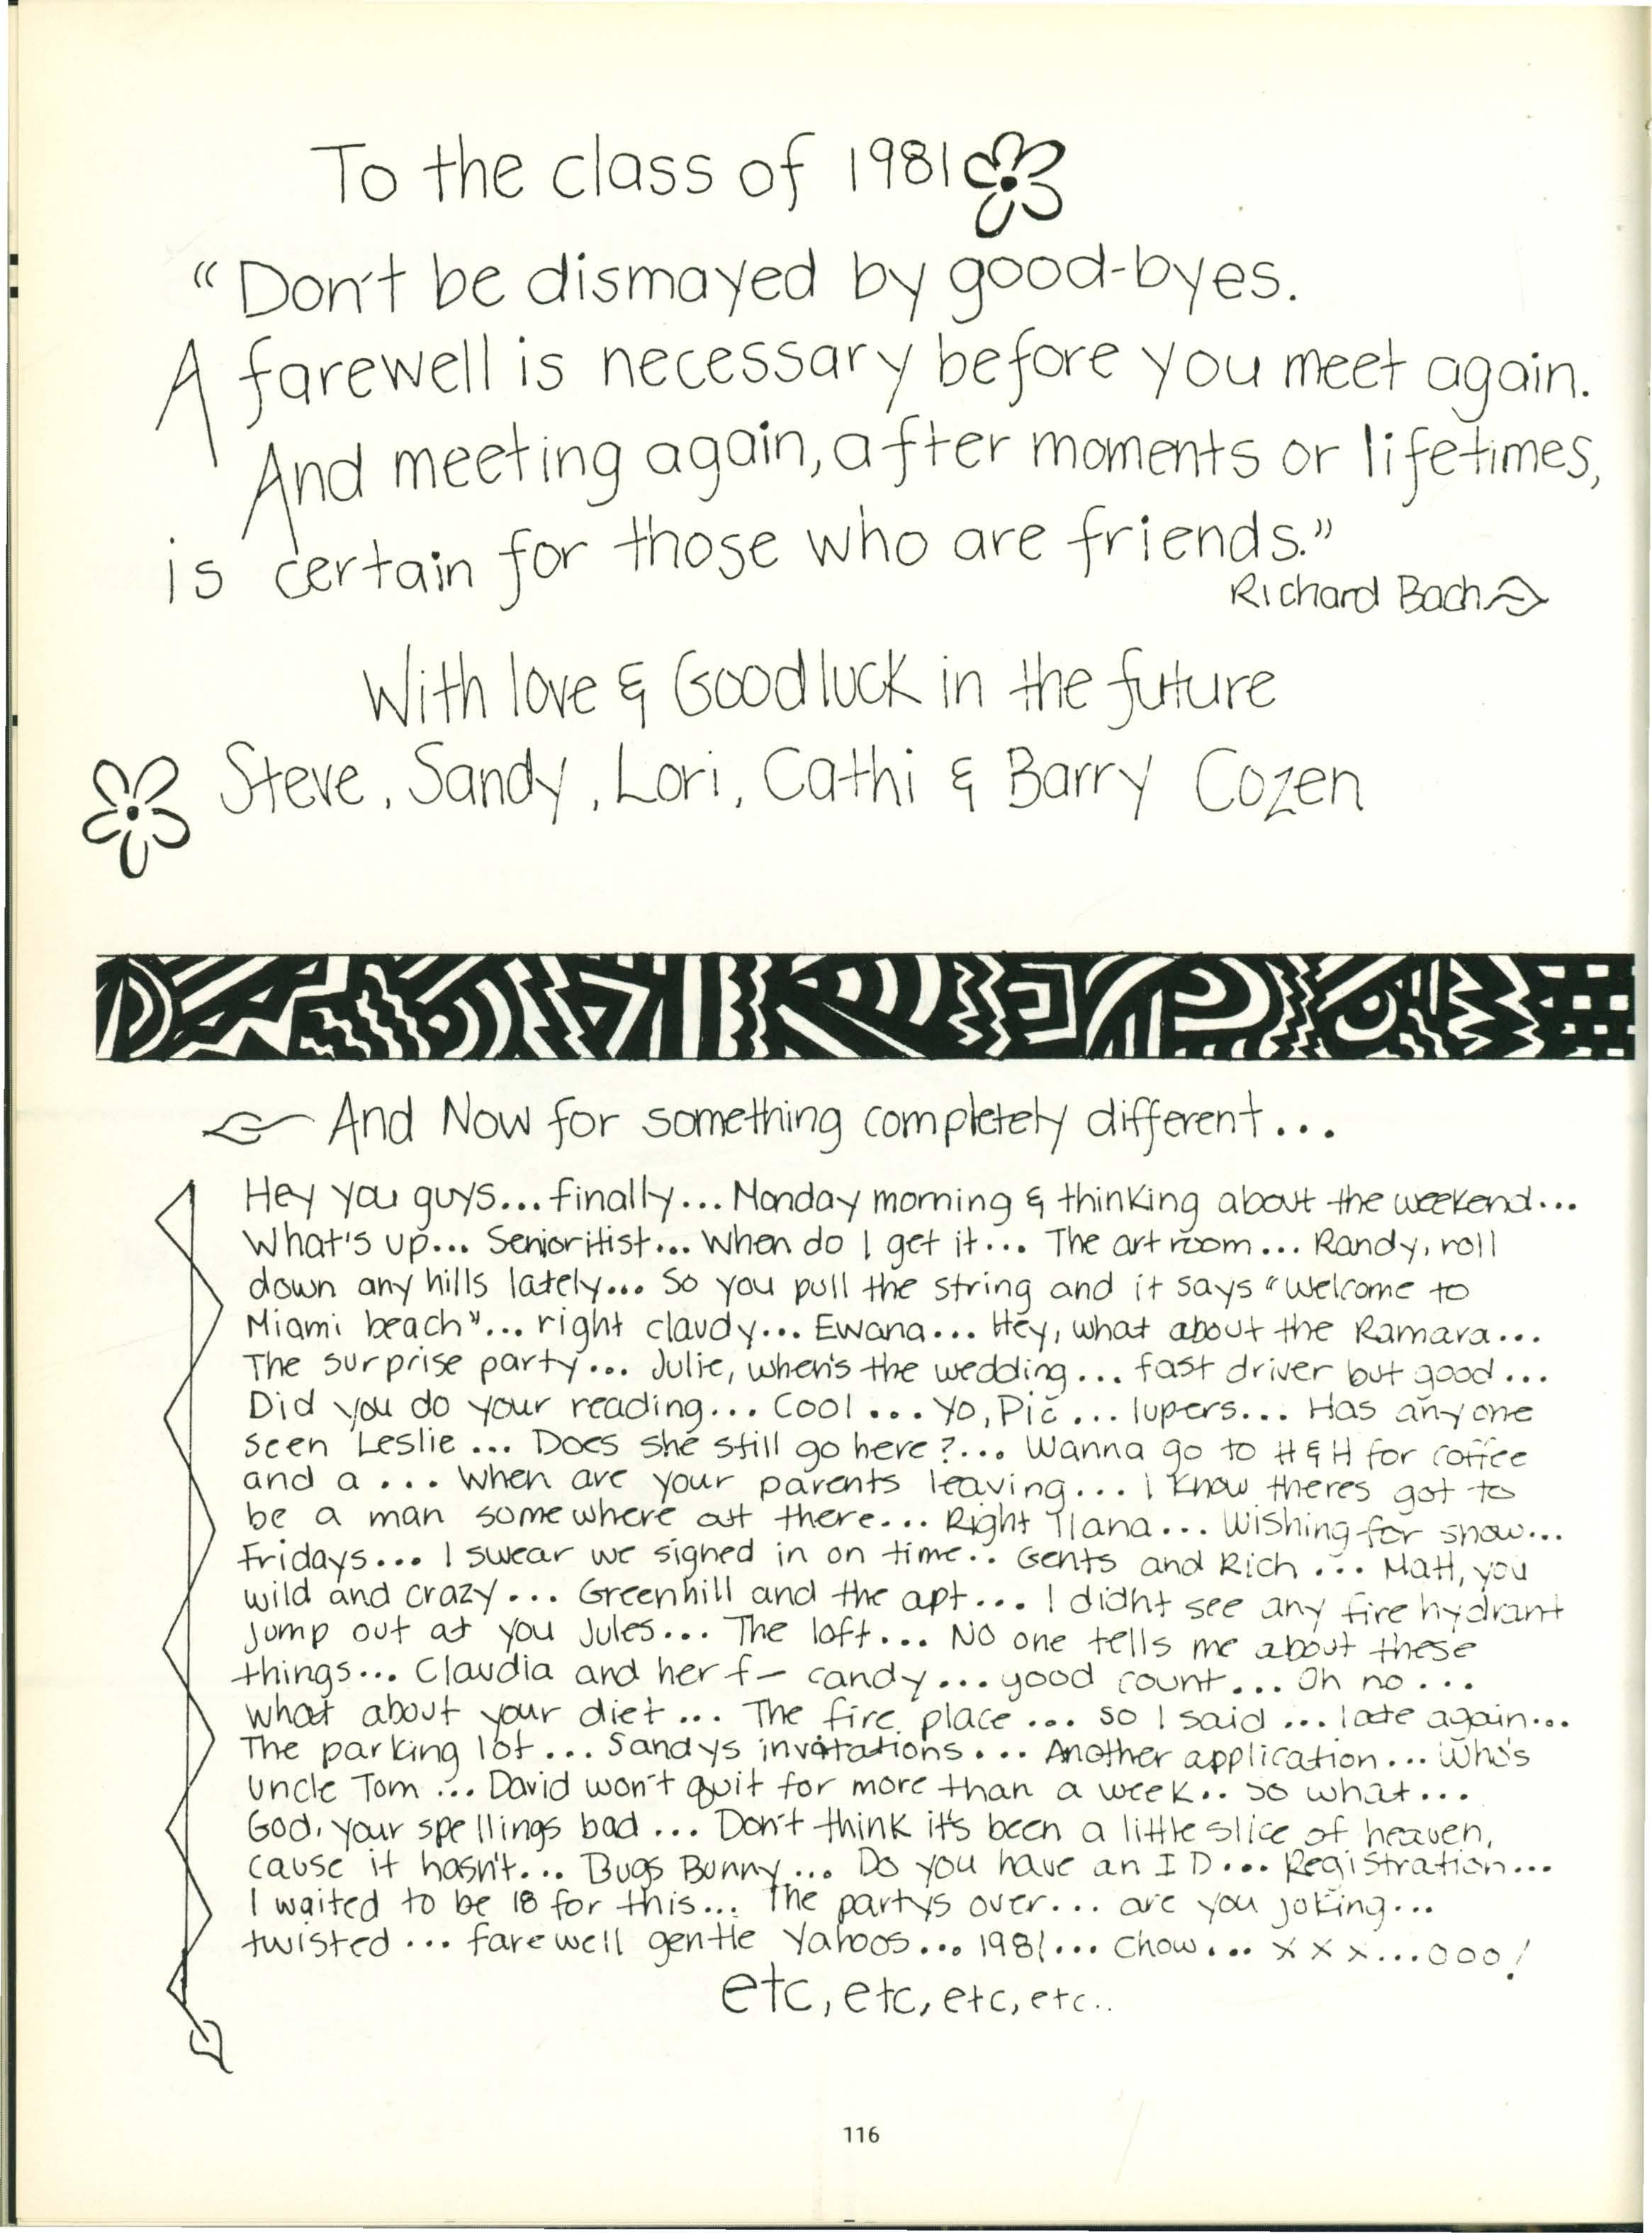 To the class of 1981
"Don't be dismayed by good-byes.
A farewell is necessary before you meet again.
And meeting again, after moments or lifetimes,
is certain for those who are friends."
Richard Bach
With love & Good luck in the future
Steve, Sandy, Lori, Cathi & Barry Cozen
And Now for something completely different...
Hey you guys... finally... Monday morning & thinking about the weekend...
What's up... Senioritist... When do I get it... The art room... Randy, roll
down any hills lately... So you pull the string and it says "Welcome to
Miami beach"... right claudy... Ewana... Hey, what about the Ramara...
The surprise party... Julie, when's the wedding... fast driver but good...
Did you do your reading... Cool... Yo, Pic... lupers... Has anyone
seen Leslie... Does she still go here?... Wanna go to H & H for coffee
and a... When are your parents leaving... I know theres got to
be a man somewhere out there... Right Ilana... Wishing for snow...
Fridays... I swear we signed in on time.. Gents and Rich... Matt, you
wild and crazy... Greenhill and the apt... I didn't see any fire hydrant
jump out at you Jules... The loft... No one tells me about these
things... Claudia and her f- candy... good count... Oh no...
What about your diet... The fire place... so I said... late again...
The parking lot... Sandys invitations... Another application... Who's
Uncle Tom... David won't quit for more than a week.. so what...
God, your spellings bad... Don't think it's been a little slice of heaven,
cause it hasn't... Bugs Bunny... Do you have an ID... Registration...
I waited to be 18 for this... The partys over... are you joking...
twisted... farewell gentle Yahoos... 1981... Chow... x x x...ooo!
etc, etc, etc, etc..
116